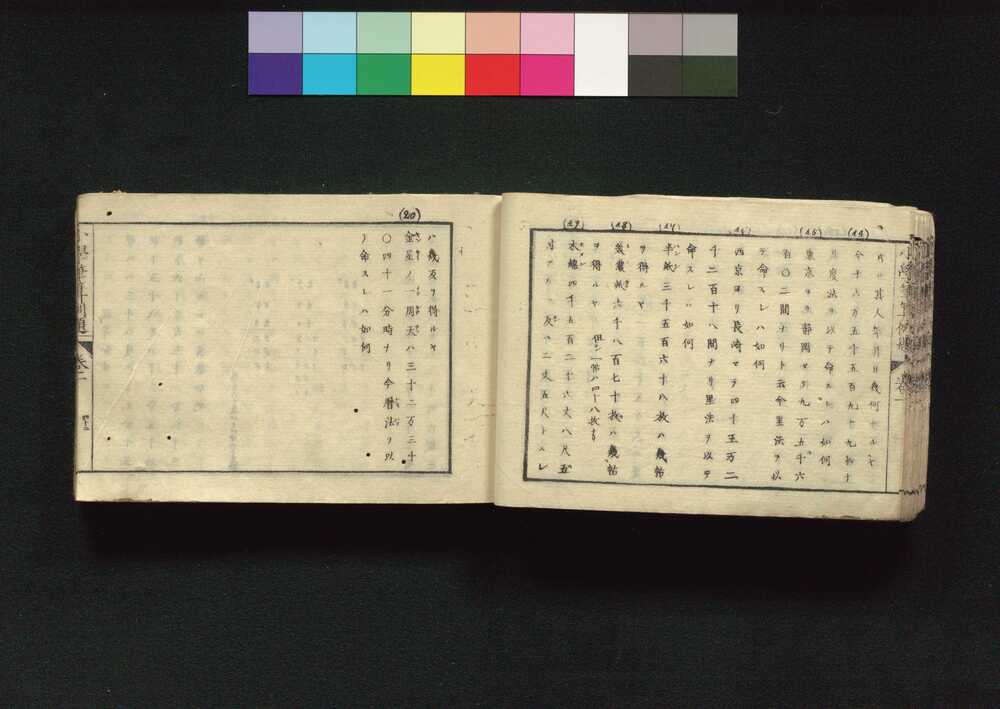 (14)
今十六万五千五百九十九秒ナ
度法ヲ以テ命スレハ如何
(15)
東京ヨリ静岡マテ九万五千六
百〇二間ナリト云今里法ヲ以
テ命スレハ如何
西京ヨリ長崎マテ四十五万二
千二百十八間ナリ里法ヲ以テ
命スレハ如何
(17)
半紙三千五百六十八枚ハ幾帖
ヲ得ルヤ
(18)
美濃紙六千八百七十枚ハ幾帖
ヲ得ルヤ 但シ一帖ハ四十八枚
(19)
木綿四千五百二十六丈八尺五
反ヲ二丈五尺トスレ
ハ幾反ヲ得ルヤ
(20)
金星ノ一周天ハ三十二万三千
〇四十一分時ナリ今暦法ヲ以
テ命スレハ如何
卷一